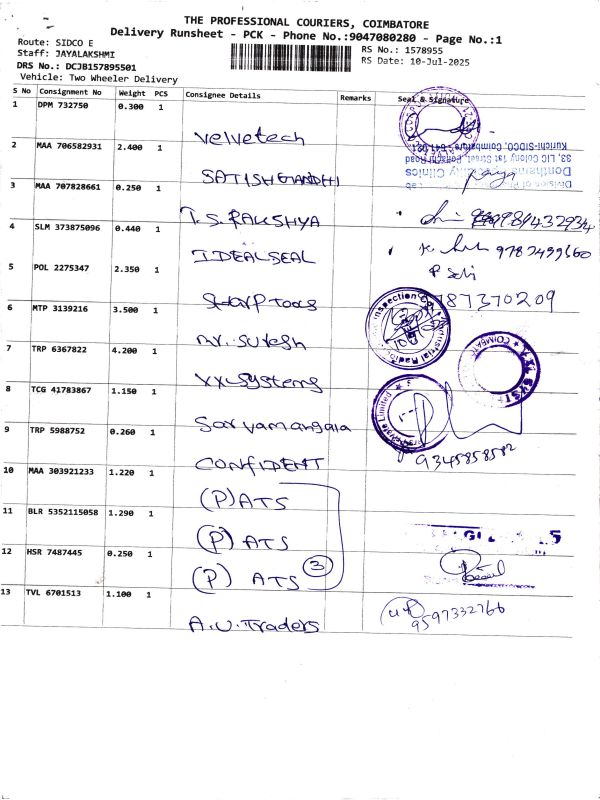 THE PROFESSIONAL COURIERS, COIMBATORE
Delivery Runsheet - PCK - Phone No.:9047080280 - Page No.:1
Route: SIDCO E
Staff: JAYALAKSHMI
DRS No.: DCJB157895501
Vehicle: Two Wheeler Delivery
RS No.: 1578955
RS Date: 10-Jul-2025
S No Consignment No Weight PCS Consignee Details Remarks Seal & Signature
1 DPM 732750 0.300 1 Velvetech
2 MAA 706582931 2.400 1 SATISH GANDHI
33, LIC Colony 1st Street, Pollachi Road
Kurichi-SIDCO, Coimbatore - 641 021
3 MAA 707828661 0.250 1 T.S. RAKSHYA
4 SLM 373875096 0.440 1 IDEAL SEAL 9787499660
5 POL 2275347 2.350 1 Sharp Tools 787370209
6 MTP 3139216 3.500 1 Mr. Suresh
7 TRP 6367822 4.200 1 VXL Systems
8 TCG 41783867 1.150 1 Sarvamangala
9 TRP 5988752 0.260 1 CONFIDENT 9345858582
10 MAA 303921233 1.220 1 (P) ATS
11 BLR 5352115058 1.290 1 (P) ATS
12 HSR 7487445 0.250 1 (P) ATS 3
13 TVL 6701513 1.100 1 A.U. Traders 9597332766